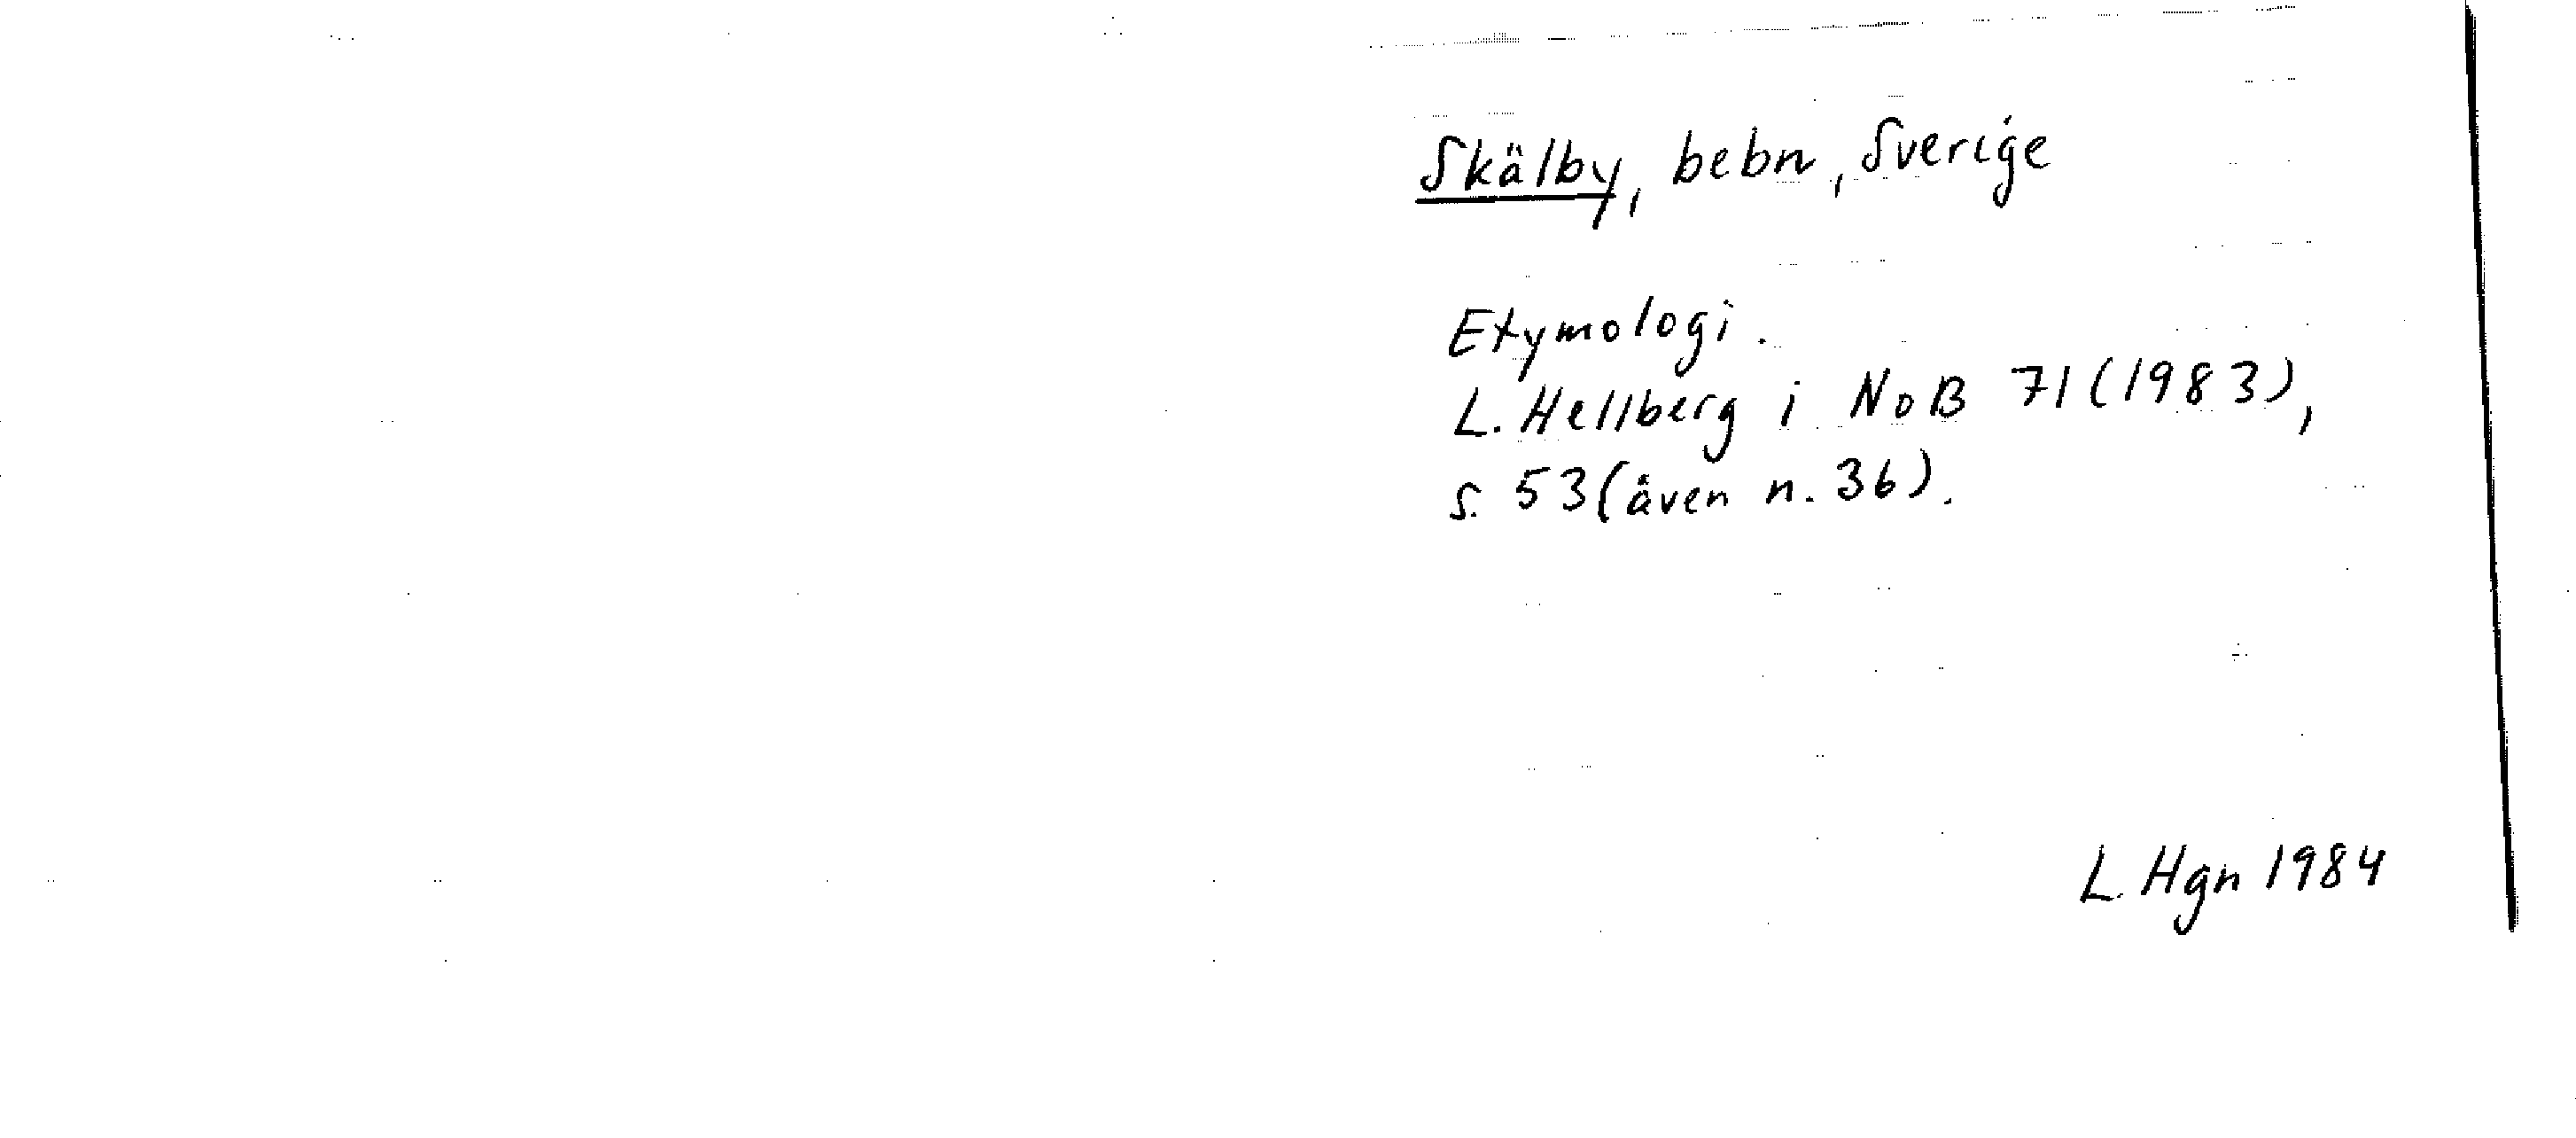 Skälby, bebn, Sverige
Etymologi.
L. Hellberg i NoB 71 (1983),
s. 53 (även n. 36).
L. Hgn 1984